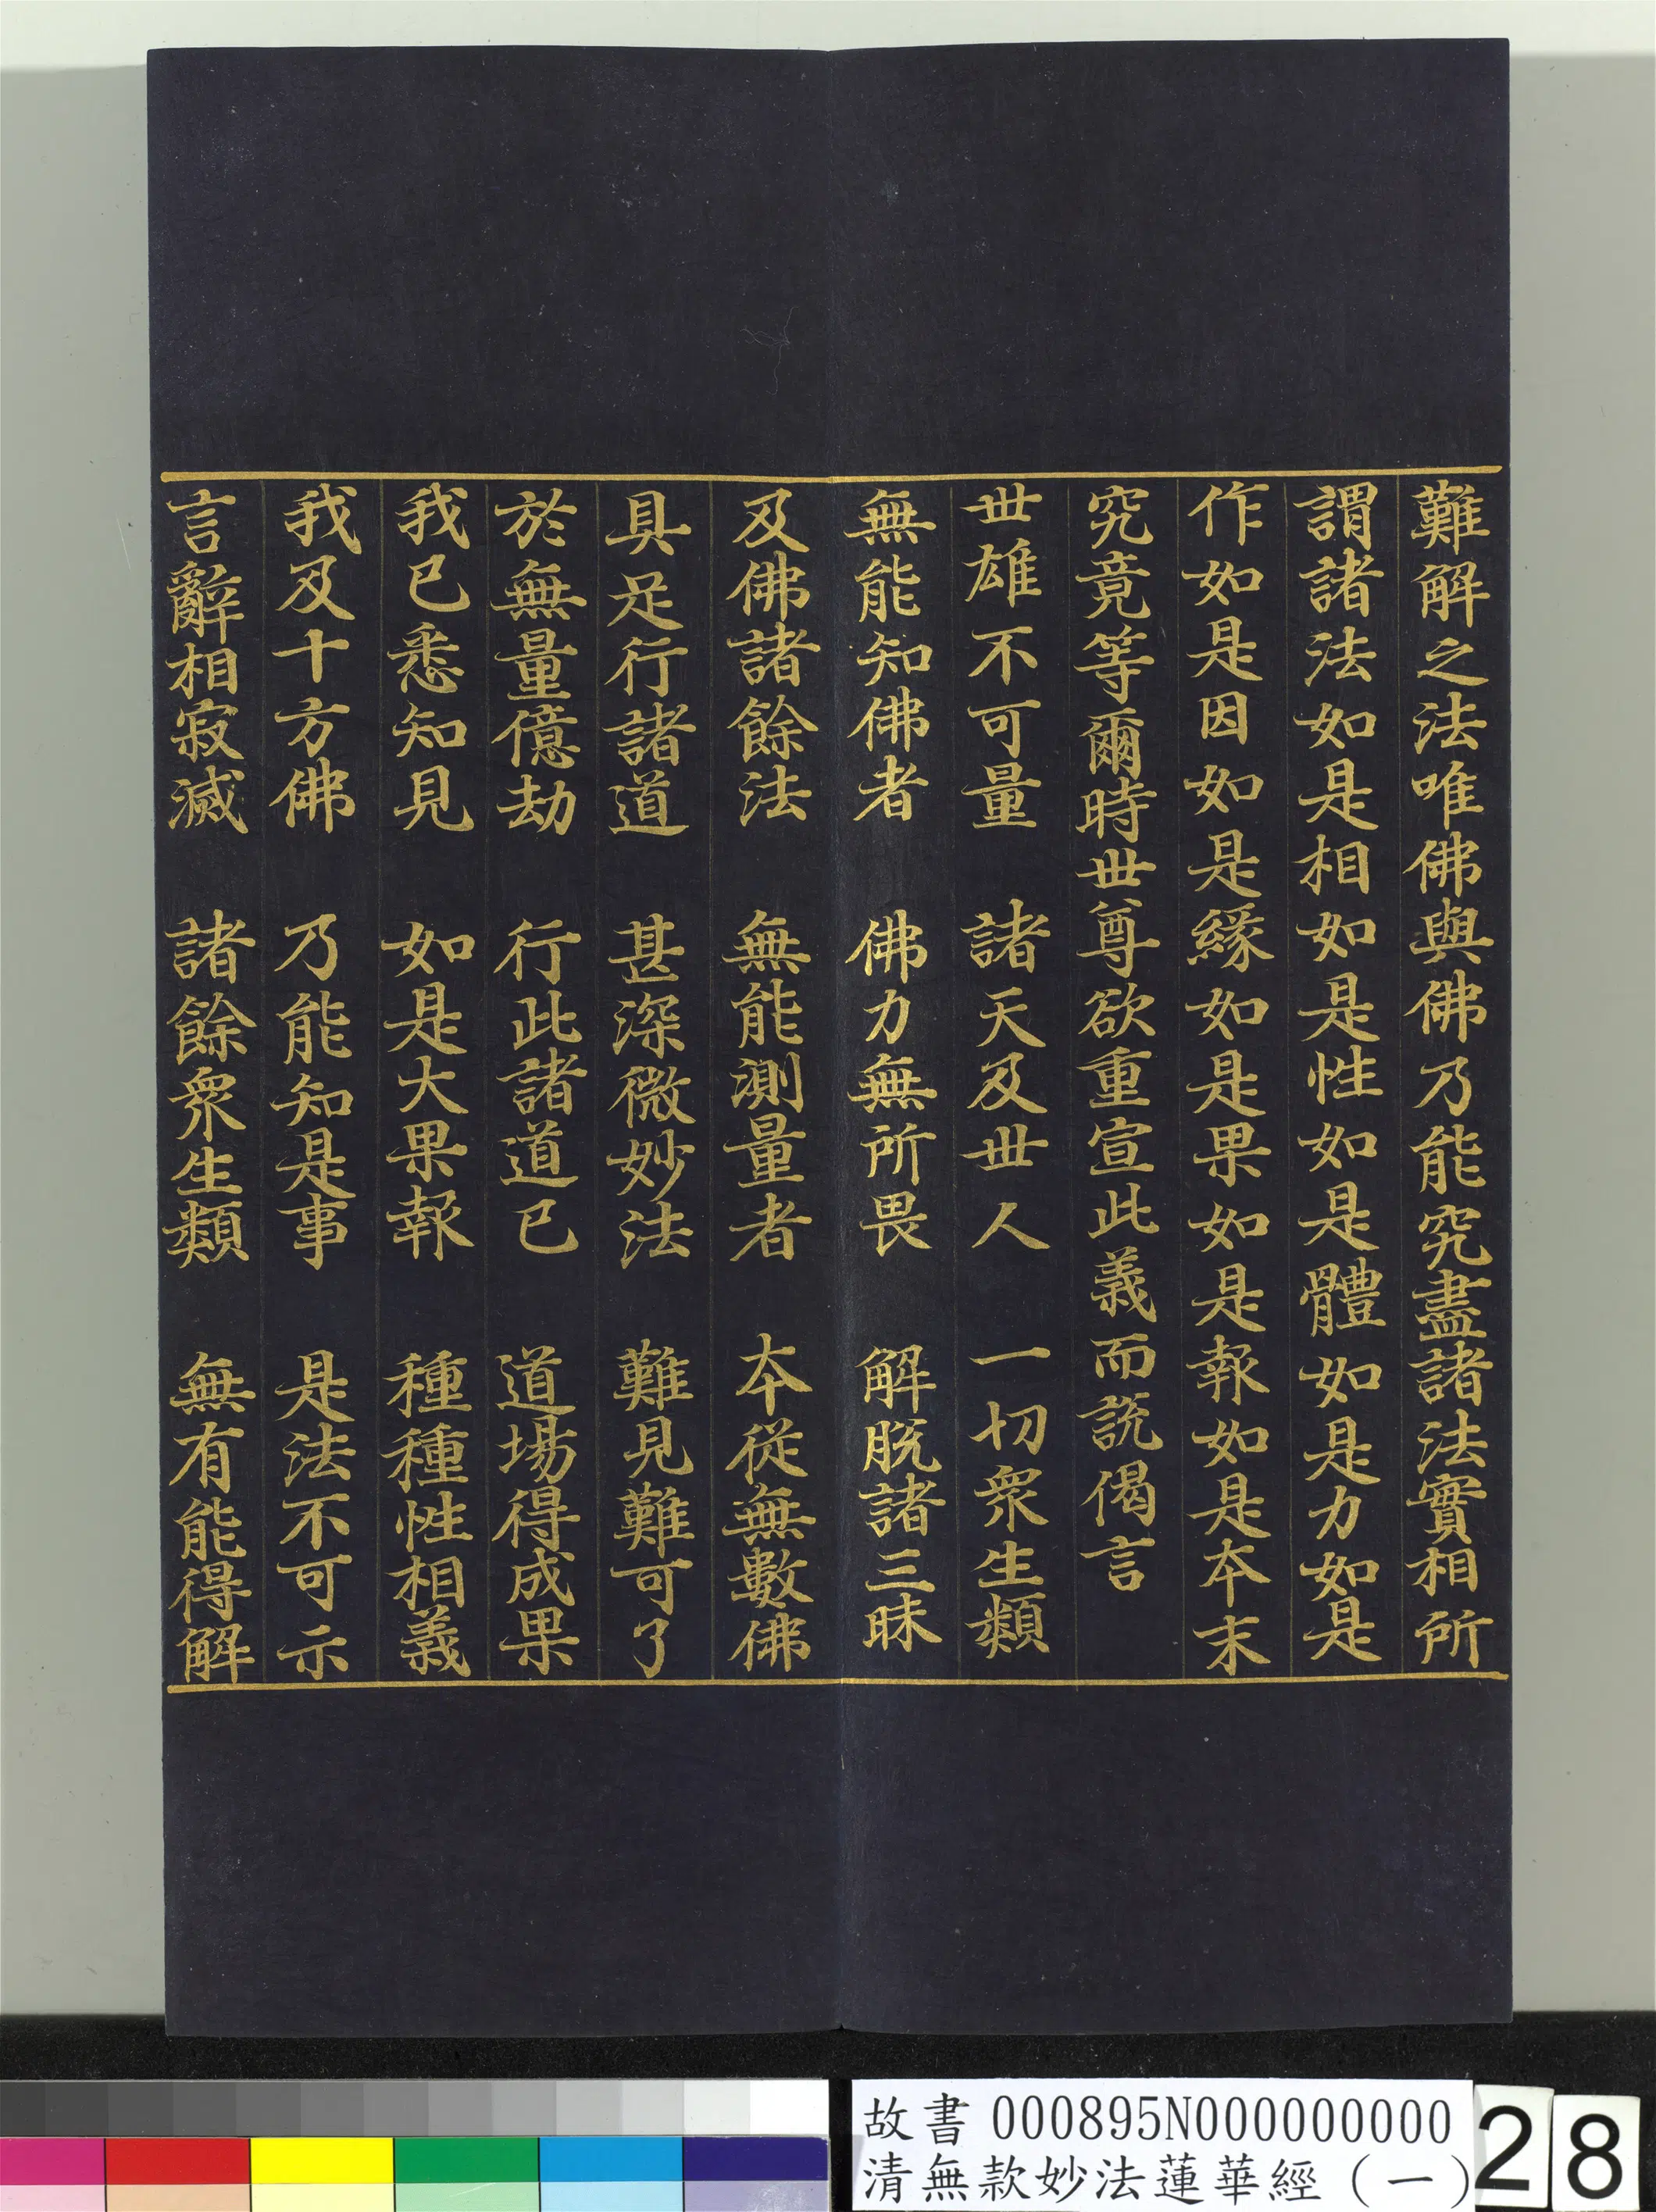 難解之法唯佛與佛乃能究盡諸法實相所
謂諸法如是相如是性如是體如是力如是
作如是因如是緣如是果如是報如是本末
究竟等爾時世尊欲重宣此義而說偈言
世雄不可量　諸天及世人　一切衆生類
無能知佛者　佛力無所畏　解脫諸三昧
及佛諸餘法　無能測量者　本從無數佛
具足行諸道　甚深微妙法　難見難可了
於無量億劫　行此諸道已　道場得成果
我已悉知見　如是大果報　種種性相義
我及十方佛　乃能知是事　是法不可示
言辭相寂滅　諸餘衆生類　無有能得解
故書 000895N000000000
清無款妙法蓮華經（一）
28